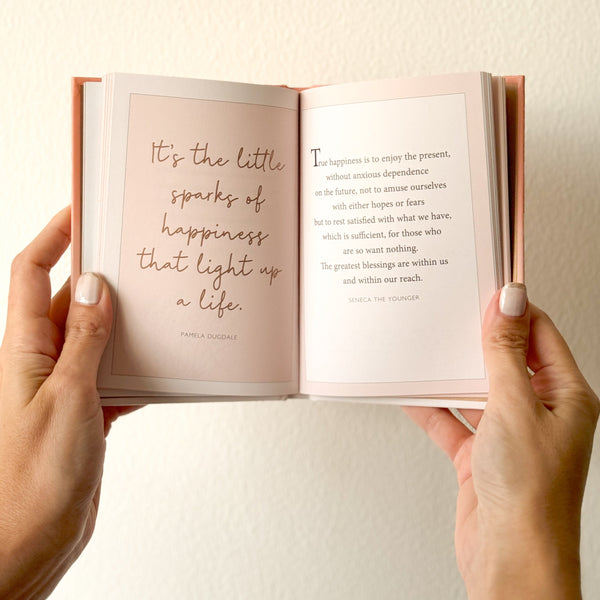 It's the little
sparks of
happiness
that light up
a life.
PAMELA DUGDALE
True happiness is to enjoy the present,
without anxious dependence
on the future, not to amuse ourselves
with either hopes or fears
but to rest satisfied with what we have,
which is sufficient, for those who
are so want nothing.
The greatest blessings are within us
and within our reach.
SENECA THE YOUNGER